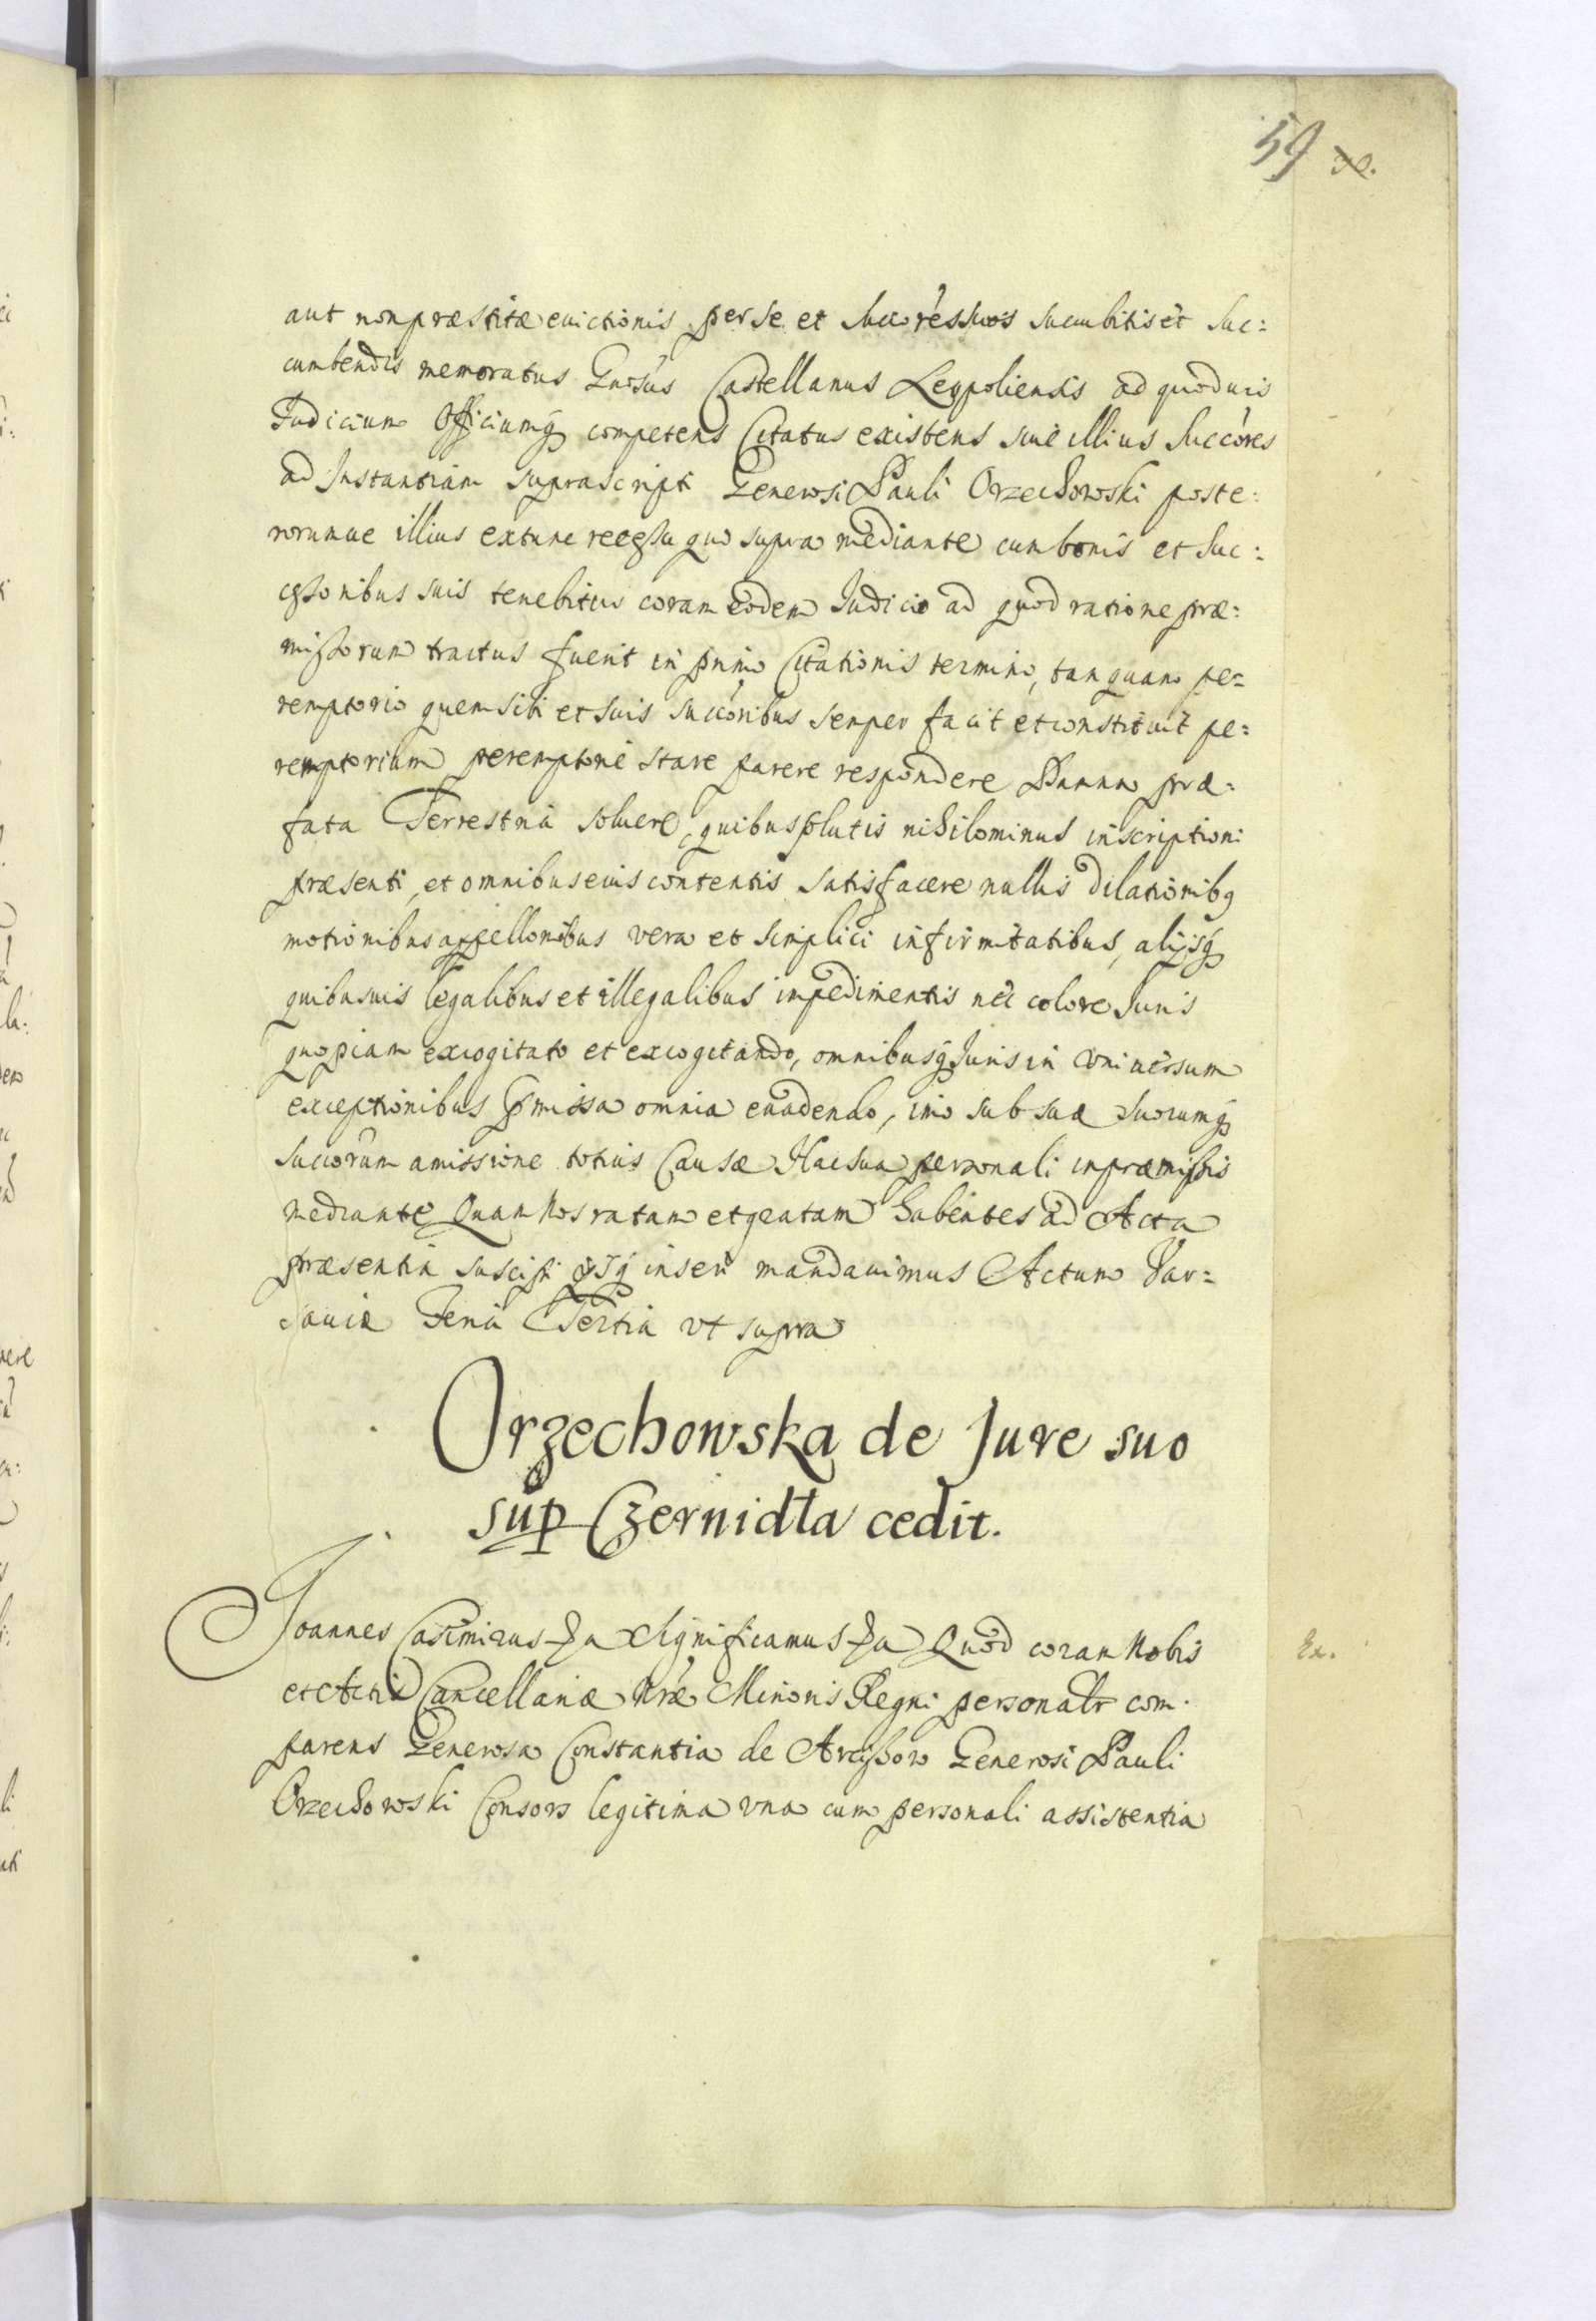 59 30.
aut non præstitæ euictionis per se et Succoressuos succubitis et Suc=
cumbendis memoratus Gnosus Castellanus Leopoliensis ad quoduis
Iudicium Officiumq competens Citatus existens siue illius Succores
ad Instantiam suprascripti Generosi Pauli Orzechowski poste=
rorumue illius extunc recessu quo supra mediante cum bonis et Suc=
cessoribus suis tenebitur coram eodem Iudicio ad quod ratione præ=
missorum tractus fuerit in primo Citationis termino, tanquam pe=
remptorio quem sibi et suis succoribus semper facit et constituit pe=
remptorium peremptorie stare parere respondere Damna præ=
fata Terrestria soluere, quibus solutis nihilominus inscriptioni
præsenti, et omnibus eius contentis satisfacere nullis dilationibq
motionibus appellonibus vera et simplici infirmitatibus, alijsq
quibusuis legalibus et illegalibus impedimentis nec colore Iuris
quopiam excogitato et excogitando, omnibusq Iuris in vniuersum
exceptionibus pmissa omnia euadendo, imo sub sua suorumq
succorum amissione totius Causæ Hac sua personali in præmissis
mediante Quam Nos ratam et gratam habentes ad Acta
præsentia suscipi ijsq inseri mandauimus Actum Var=
sauiæ Feria Tertia vt supra
Orzechowska de Jure suo
sup Czernidta cedit.
Joannes Casimirus &a Significamus &a Quod coram Nobis
Ex.
et Actis Cancellariæ Nræ Minoris Regni personalr com.
parens Generosa Constantia de Arcissow Generosi Pauli
Orzechowski Consors legitima vna cum personali assistentia